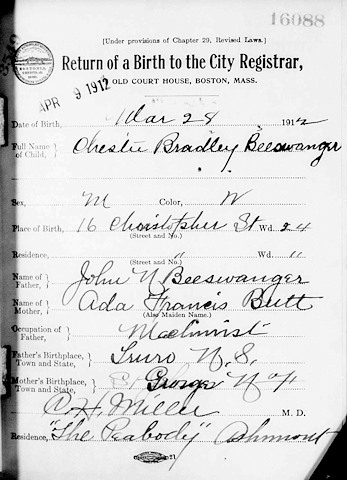 16088
[Under provisions of Chapter 29, Revised Laws.]
Return of a Birth to the City Registrar,
OLD COURT HOUSE, BOSTON, MASS.
APR 9 1912
Date of Birth, Mar 28 1912
Full Name of Child, } Chester Bradley Beeswanger
Sex, M Color, W
Place of Birth, 16 Christopher St Wd. 24
(Street and No.)
Residence, " Wd. "
(Street and No.)
Name of Father, } John N Beeswanger
Name of Mother, } Ada Francis Butt
(Also Maiden Name.)
Occupation of Father, } Machinist
Father's Birthplace, Town and State, } Truro N.S.
Mother's Birthplace, Town and State, } Georges N F
C. H. Miller M. D.
Residence, "The Peabody" Ashmont